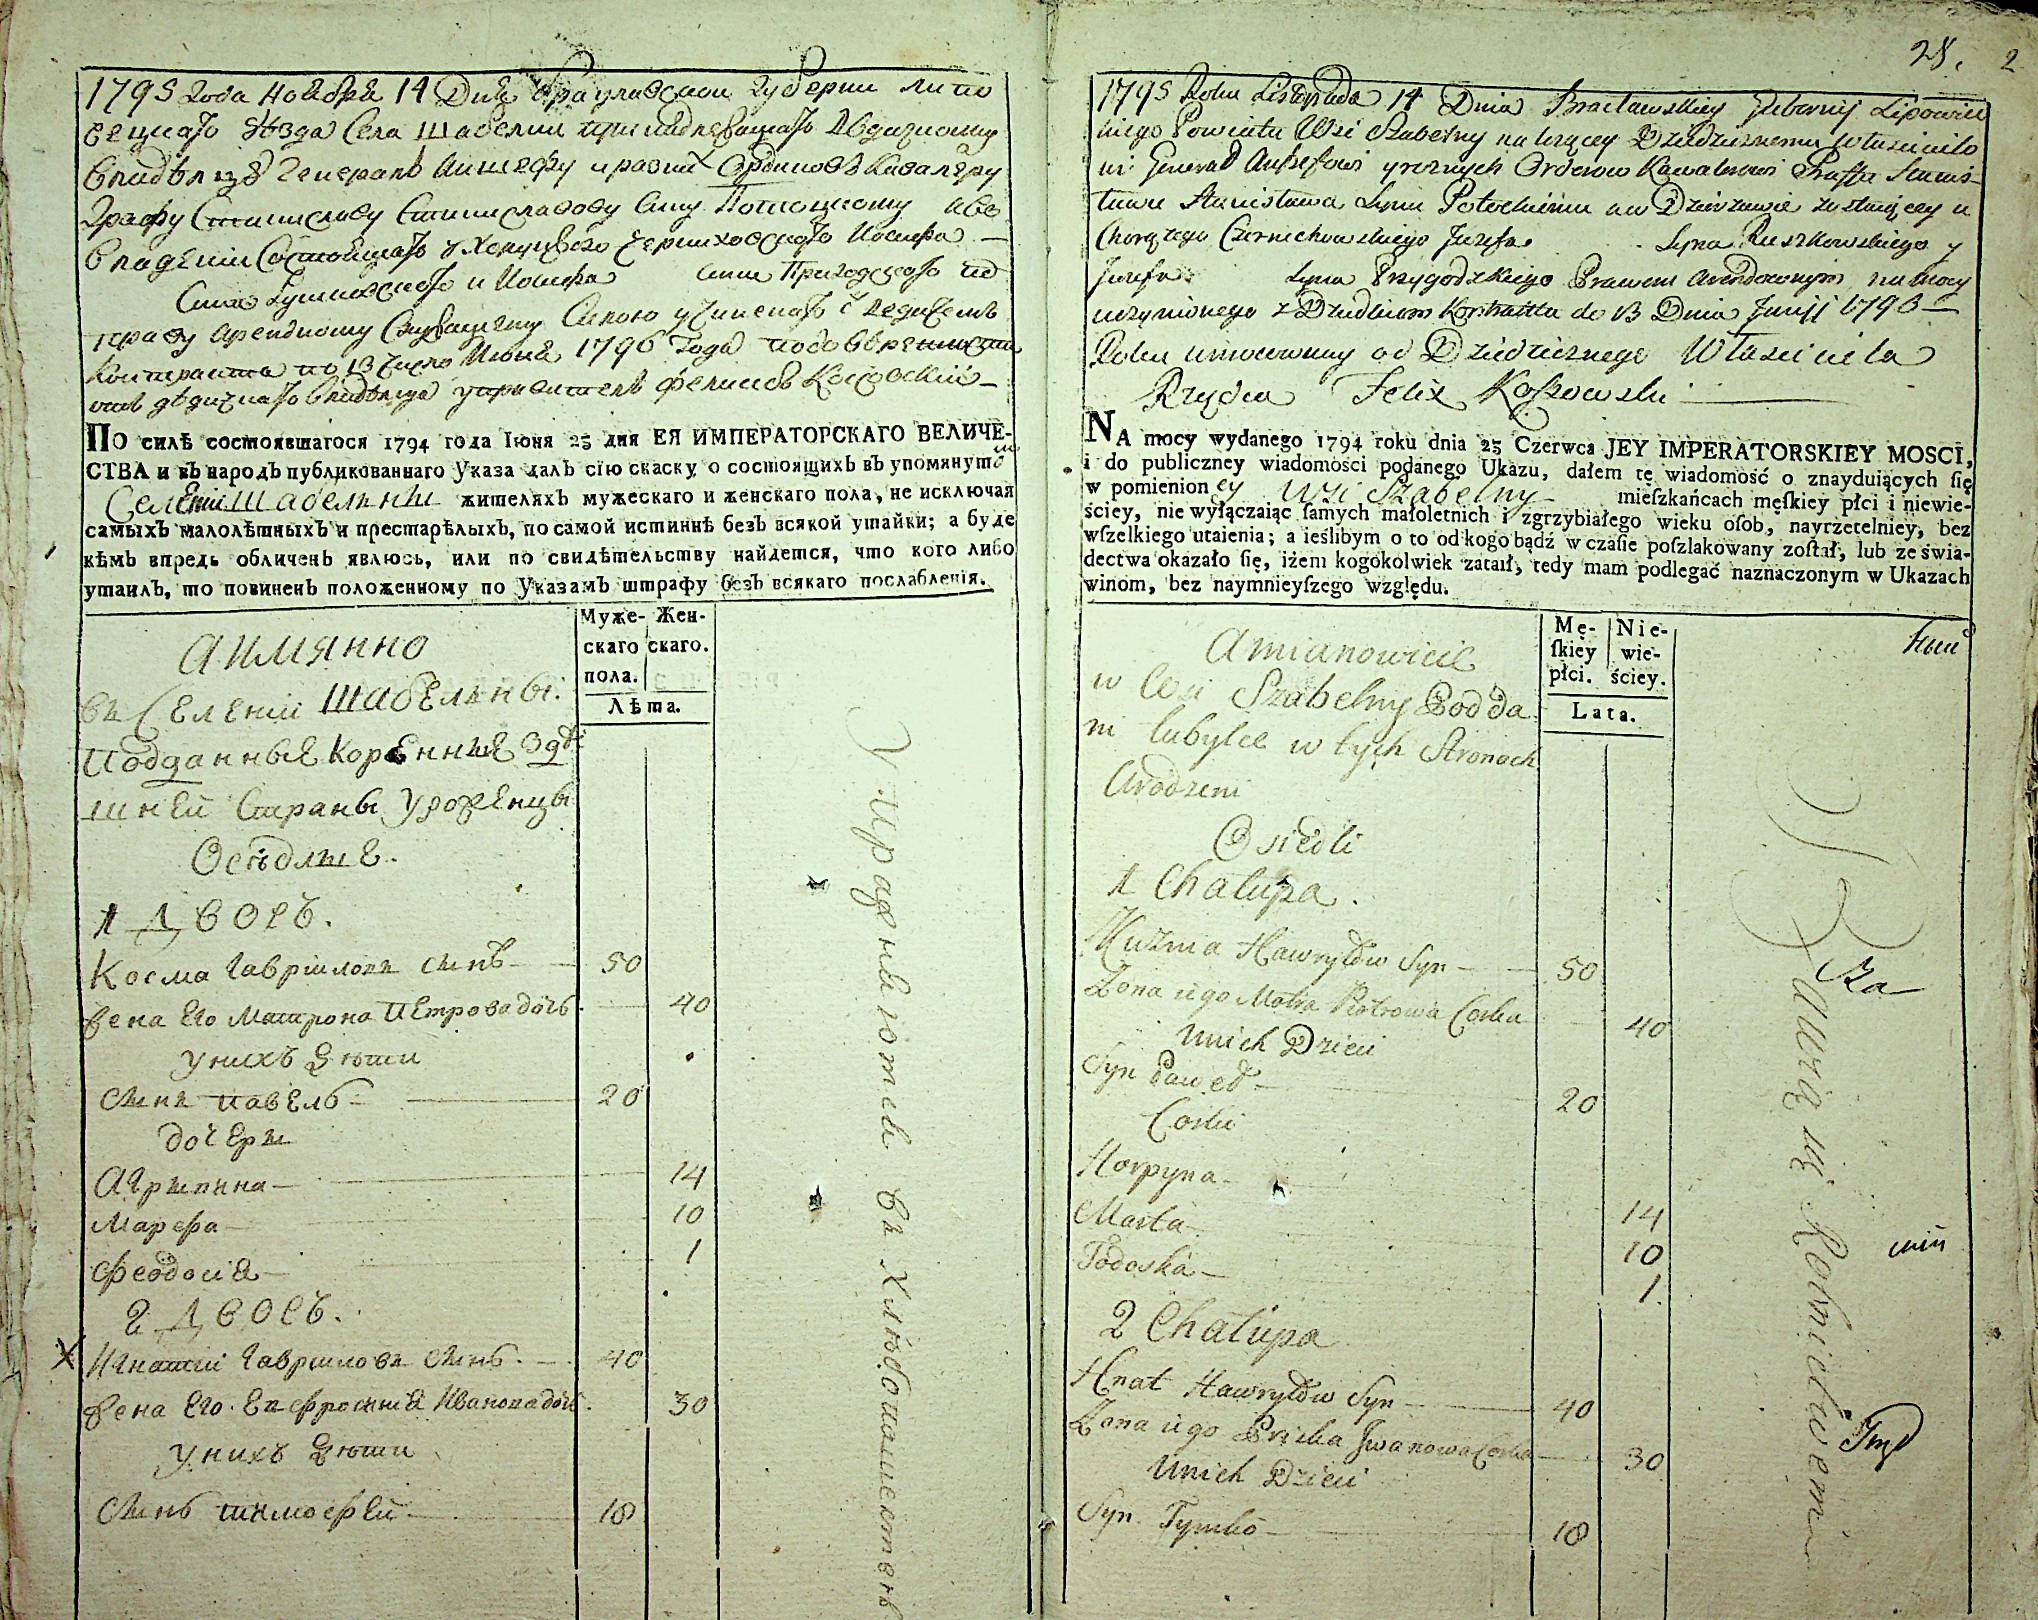 1795 Года Ноября 14 Дня Брацлавской Губернии Липо
вецкаго уѣзда Села Шабелни принадлежащаго Дедичному
Владѣлцу Генералъ Аншефу и разныхъ Ордиповъ Кавалеру
Графу Станиславу Станиславову Сину Потоцкому аво
владении Состоящаго у Хоружего Черниховского Иосифа
Сина Рушковского и Иосифа сина Пригодского по
праву арендному Силою учиненаго с дедичемъ
контракта по 13 число Июня 1796 Года
отъ дѣдичнаго владѣлца управитель Феликсъ Кошовский
По силѣ состоявшагося 1794 года Іюня 25 дня ЕЯ ИМПЕРАТОРСКАГО ВЕЛИЧЕ-
СТВА и въ народъ публикованнаго Указа далъ сію скаску, о состоящихъ въ упомянуто
Селении Шабелни жителяхъ мужескаго и женскаго пола, не исключая
самыхъ малолѣтныхъ и престарѣлыхъ, по самой истиннѣ безъ всякой утайки; а буде
кѣмъ впредь обличенъ явлюсь, или по свидѣтельству найдется, что кого либо
утаилъ, то повиненъ положенному по Указамъ штрафу безъ всякаго послабленія.
Муже- Жен-
скаго скаго.
пола.
Лѣта.
А имянно
въ Селении Шабелни.
Подданные Коренние здѣ
шней Страны Уроженцы
Осѣдлие.
1 Дворъ.
Косма Гавриловъ синъ 50
Жена Его Матрона Петрова дочь 40
У нихъ Дѣти
Синъ Павелъ 20
дочери
Агрипина 14
Марфа 10
Феодосия 1
2 Дворъ.
X Игнатий Гавриловъ синъ. 40
Жена Его Евфросиния Иванова дочь. 30
У нихъ Дѣти
Синъ Тимофей 18
Упражняются въ Хлѣбопашествѣ
28. 2
1795 Roku Listopada 14 Dnia Bracławskiey Gubernij Lipowiec
kiego Powiatu Wsi Szabelny należącey Dziedzicznemu Właścicielo
wi Generał Anszefowi y rożnych Orderow Kawalerowi Graffu Stanis-
ławu Stanisława Synu Potockiemu a w Dzierżawie zostaiącey u
Chorążego Czernichowskiego Jozefa Syna Ruszkowskiego y
Jozefa Syna Przygodzkiego Prawem arendownym na mocy
uczynionego z Dziedzicem Kontraktu do 13 Dnia Junij 1796
Roku umocowany od Dziedzicznego Właściciela
Rządca Felix Koszowski
NA mocy wydanego 1794 roku dnia 25 Czerwca JEY IMPERATORSKIEY MOSCI,
i do publiczney wiadomosci podanego Ukazu, dałem tę wiadomość o znayduiących się
w pomienionęy Wsi Szabelny mieſzkańcach męſkiey płci i niewie-
ściey, nie wyłączaiąc ſamych małoletnich i zgrzybiałego wieku oſob, nayrzetelniey, bez
wſzelkiego utaienia; a ieślibym o to od kogo bądź w czaſie poſzlakowany zoſtał, lub ze świa-
dectwa okazało się, iżem kogokolwiek zataił, tedy mam podlegać naznaczonym w Ukazach
winom, bez naymnieyſzego względu.
Mę- Nie-
ſkiey wie-
płci. ściey.
Lata.
A mianowicie
w Wsi Szabelny Podda
ni tubylce w tych Stronach
Urodzeni
Osiedli
1 Chałupa.
Kuzma Hawryłow Syn 50
Zona iego Motra Piotrowa Corka 40
U nich Dzieci
Syn Paweł 20
Corki
Horpyna 14
Marta 10
Todoska 1.
2 Chałupa
Hnat Hawryłow Syn 40
Zona iego Pryska Jwanowa Corka 30
U nich Dzieci
Syn Tymko 18
Bawią się Rolnictwem